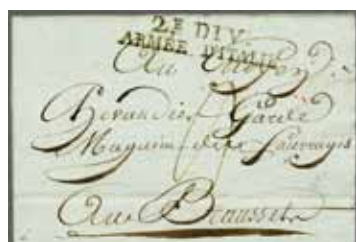 2E DIV.
ARMÉE D'ITALIE
Au Citoyen
Garde
Magasin des fourrages
Au Beausset